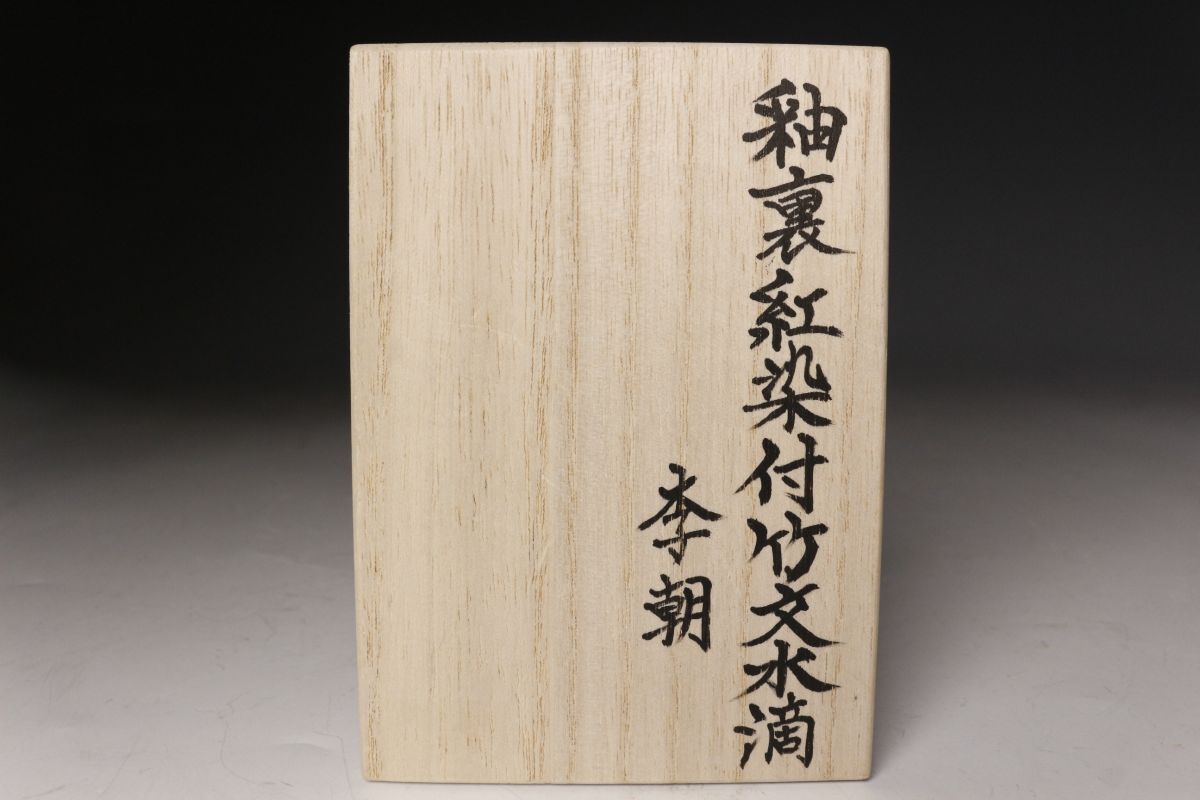 釉裏紅染付竹文水滴
李朝